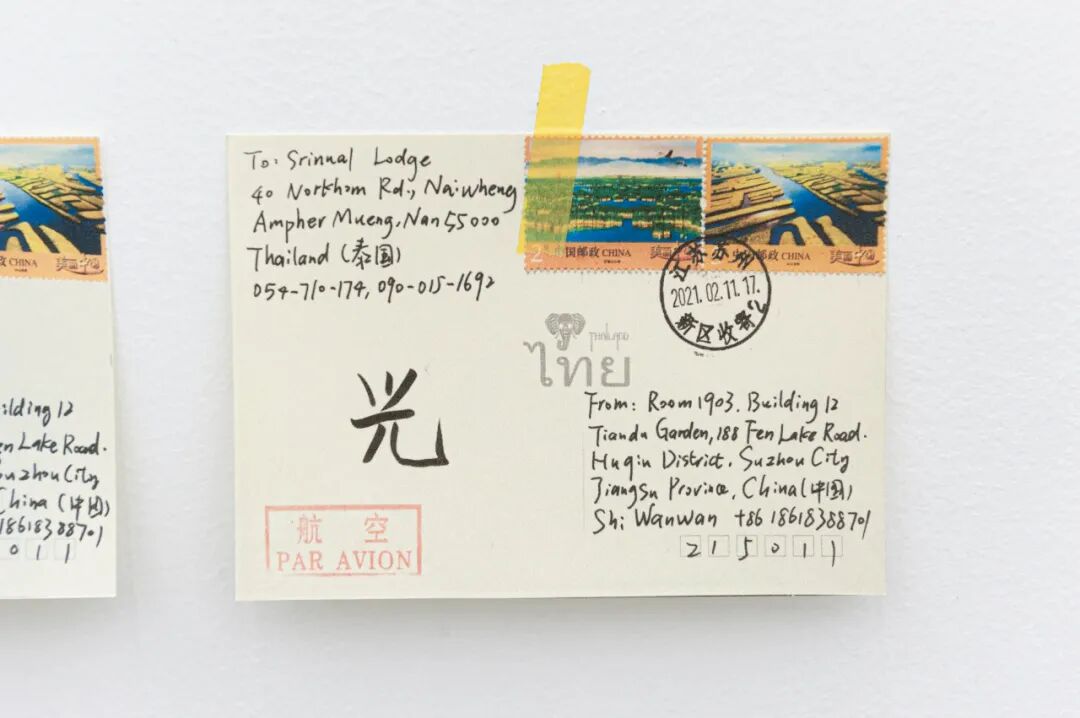 政 CHINA
美丽中国
ilding 12
en Lake Road.
uzhou City
China (中国)
18618388701
0 1 1
To: Srinual Lodge
40 Norkham Rd., Naiwheng
Ampher Mueng, Nan 55000
Thailand (泰国)
054-710-174, 090-015-1692
2
中国邮政 CHINA
美丽中国
中国邮政 CHINA
美丽中国
江苏苏州
2021.02.11.17.
新区收寄
THAILAND
ไทย
光
From: Room 1903. Building 12
Tiandu Garden, 188 Fen Lake Road.
Huqiu District. Suzhou City
Jiangsu Province, China (中国)
Shi Wanwan +86 18618388701
2 1 5 0 1 1
航 空
PAR AVION